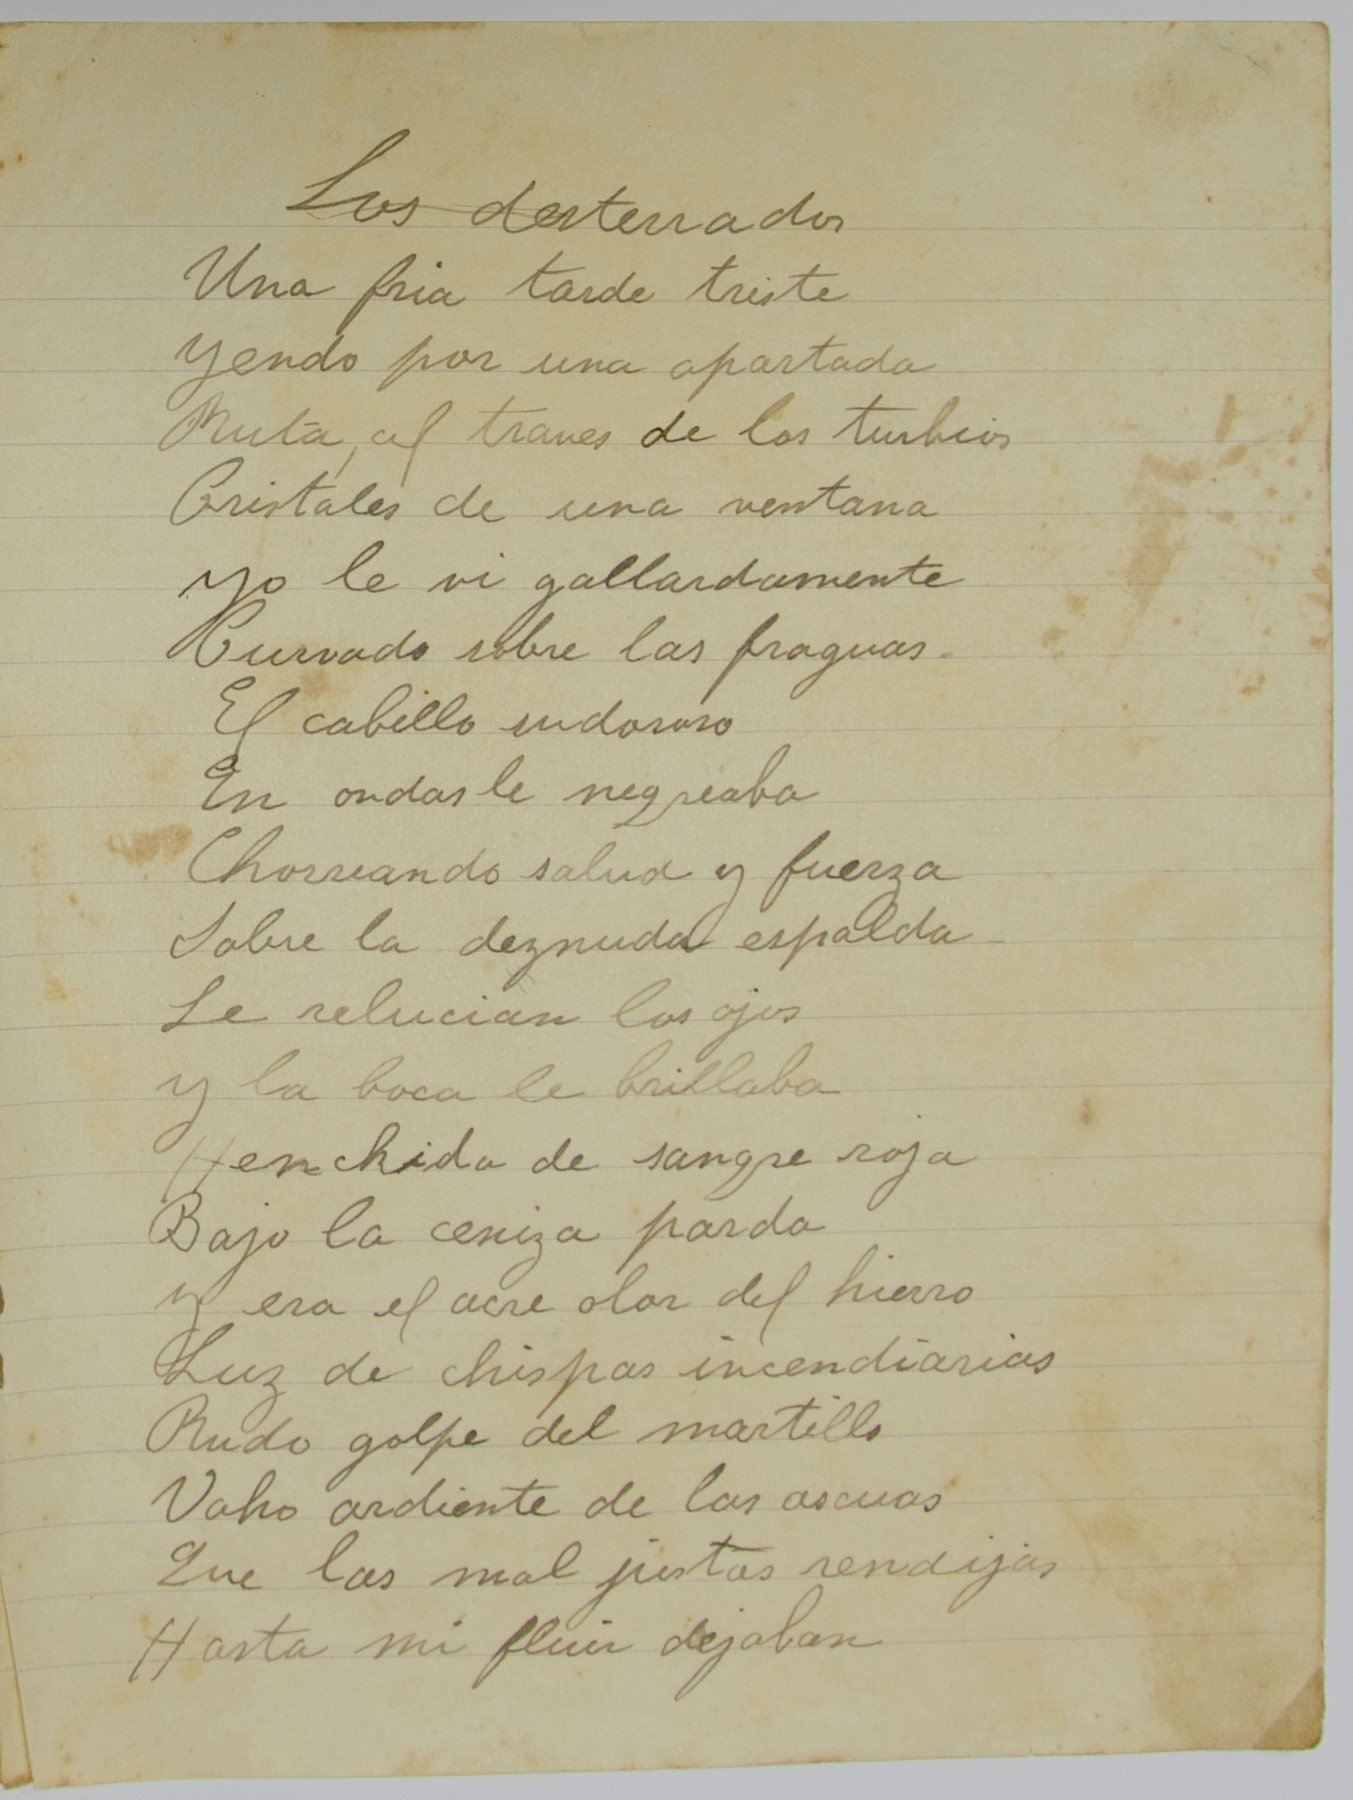 Los desterrados
Una fria tarde triste
Yendo por una apartada
Ruta, al traves de los turbios
Cristales de una ventana
Yo le vi gallardamente
Curvado sobre las fraguas.
El cabello sudoroso
En ondas le negreaba
Chorreando salud y fuerza
Sobre la deznuda espalda
Le relucian los ojos
y la boca le brillaba
Henchida de sangre roja
Bajo la ceniza parda
y era el acre olor del hierro
Luz de chispas incendiarias
Rudo golpe del martillo
Vaho ardiente de las ascuas
Que las mal justas rendijas
Hasta mi fluir dejaban